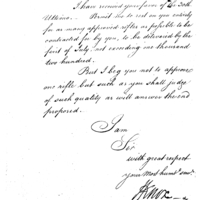 I have received your favor of the 30th
Ultimo. Permit me to rest on you entirely
for as many approved rifles as possible to be
contracted for by you, to be delivered by the
first of July, not exceeding one thousand
two hundred.
But I beg you not to approve
one rifle but such as you shall judge
of such quality as will answer the end
proposed.
I am
Sir
with great respect
your most humb serv.
HKnox